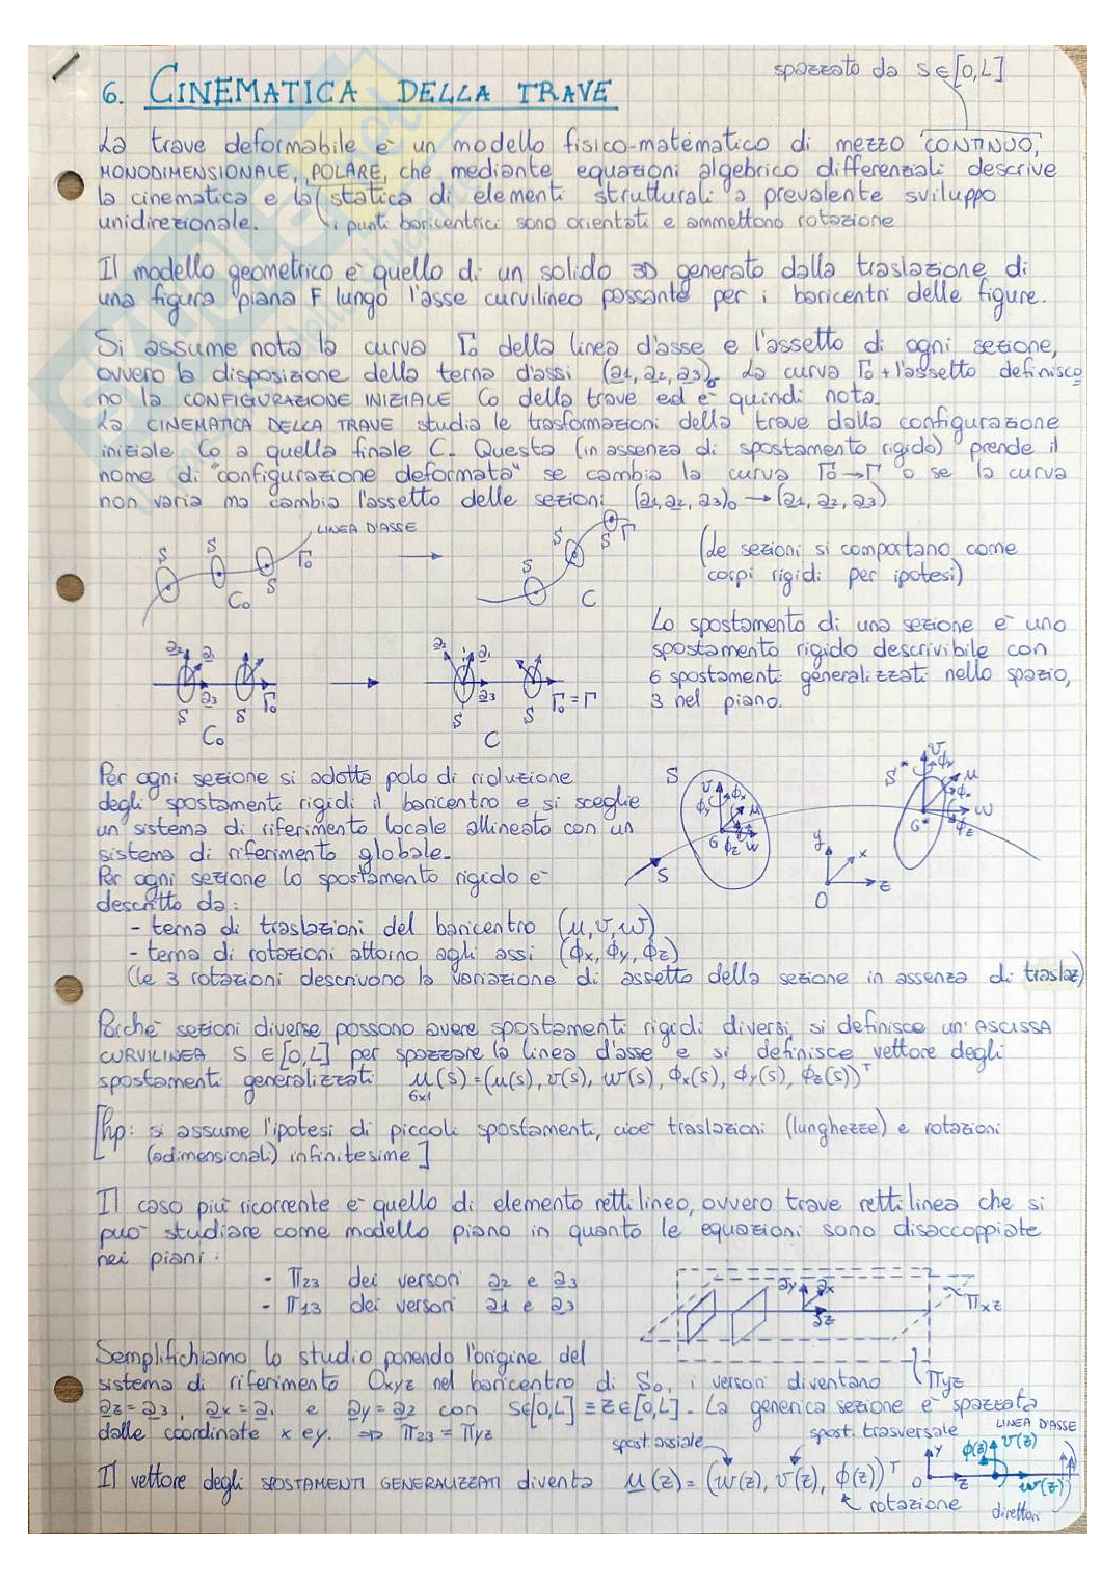 spazzato da S∈[0,L]
6. CINEMATICA DELLA TRAVE
La trave deformabile è un modello fisico-matematico di mezzo CONTINUO,
MONODIMENSIONALE, POLARE, che mediante equazioni algebrico differenziali descrive
la cinematica e la statica di elementi strutturali a prevalente sviluppo
unidirezionale. i punti baricentrici sono orientati e ammettono rotazione
Il modello geometrico è quello di un solido 3D generato dalla traslazione di
una figura piana F lungo l'asse curvilineo passante per i baricentri delle figure.
Si assume nota la curva Γ₀ della linea d'asse e l'assetto di ogni sezione,
ovvero la disposizione della terna d'assi (a1, a2, a3)₀. La curva Γ₀ + l'assetto definisco
no la CONFIGURAZIONE INIZIALE C₀ della trave ed è quindi nota.
La CINEMATICA DELLA TRAVE studia le trasformazioni della trave dalla configurazione
iniziale C₀ a quella finale C. Questa (in assenza di spostamento rigido) prende il
nome di "configurazione deformata" se cambia la curva Γ₀→Γ o se la curva
non varia ma cambia l'assetto delle sezioni (a1, a2, a3)₀ → (a1, a2, a3)
LINEA D'ASSE
S S S Γ₀ C₀
S S S Γ C
(Le sezioni si comportano come
corpi rigidi per ipotesi)
Lo spostamento di una sezione è uno
spostamento rigido descrivibile con
6 spostamenti generalizzati nello spazio,
3 nel piano.
a2 a1 a3 S S Γ₀ C₀
a2 a1 a3 S S Γ₀=Γ C
Per ogni sezione si adotta polo di riduzione
degli spostamenti rigidi il baricentro e si sceglie
un sistema di riferimento locale allineato con un
sistema di riferimento globale.
Per ogni sezione lo spostamento rigido è
descritto da:
S v ϕy ϕx u G ϕz w S
S* v ϕy u ϕx w G* ϕz
y x z O
- terna di traslazioni del baricentro (u, v, w)
- terna di rotazioni attorno agli assi (ϕx, ϕy, ϕz)
(le 3 rotazioni descrivono la variazione di assetto della sezione in assenza di traslaz)
Poiché sezioni diverse possono avere spostamenti rigidi diversi, si definisce un' ASCISSA
CURVILINEA S ∈ [0,L] per spazzare la linea d'asse e si definisce vettore degli
spostamenti generalizzati u(s) = (u(s), v(s), w(s), ϕx(s), ϕy(s), ϕz(s))ᵀ
6x1
[hp: si assume l'ipotesi di piccoli spostamenti, cioè traslazioni (lunghezze) e rotazioni
(adimensionali) infinitesime]
Il caso più ricorrente è quello di elemento rettilineo, ovvero trave rettilinea che si
può studiare come modello piano in quanto le equazioni sono disaccoppiate
nei piani:
- Π23 dei versori a2 e a3
- Π13 dei versori a1 e a3
ay ax az Πxz
Πyz
Semplifichiamo lo studio ponendo l'origine del
sistema di riferimento Oxyz nel baricentro di S₀, i versori diventano
az = a3, ax = a1 e ay = a2 con S∈[0,L] ≡ z∈[0,L]. La generica sezione è spazzata
dalle coordinate x e y. ⇒ Π23 = Πyz
spost. assiale spost. trasversale
LINEA D'ASSE
Il vettore degli SPOSTAMENTI GENERALIZZATI diventa u(z) = (w(z), v(z), ϕ(z))ᵀ
rotazione
y O z ϕ(z) v(z) w(z)
direttori